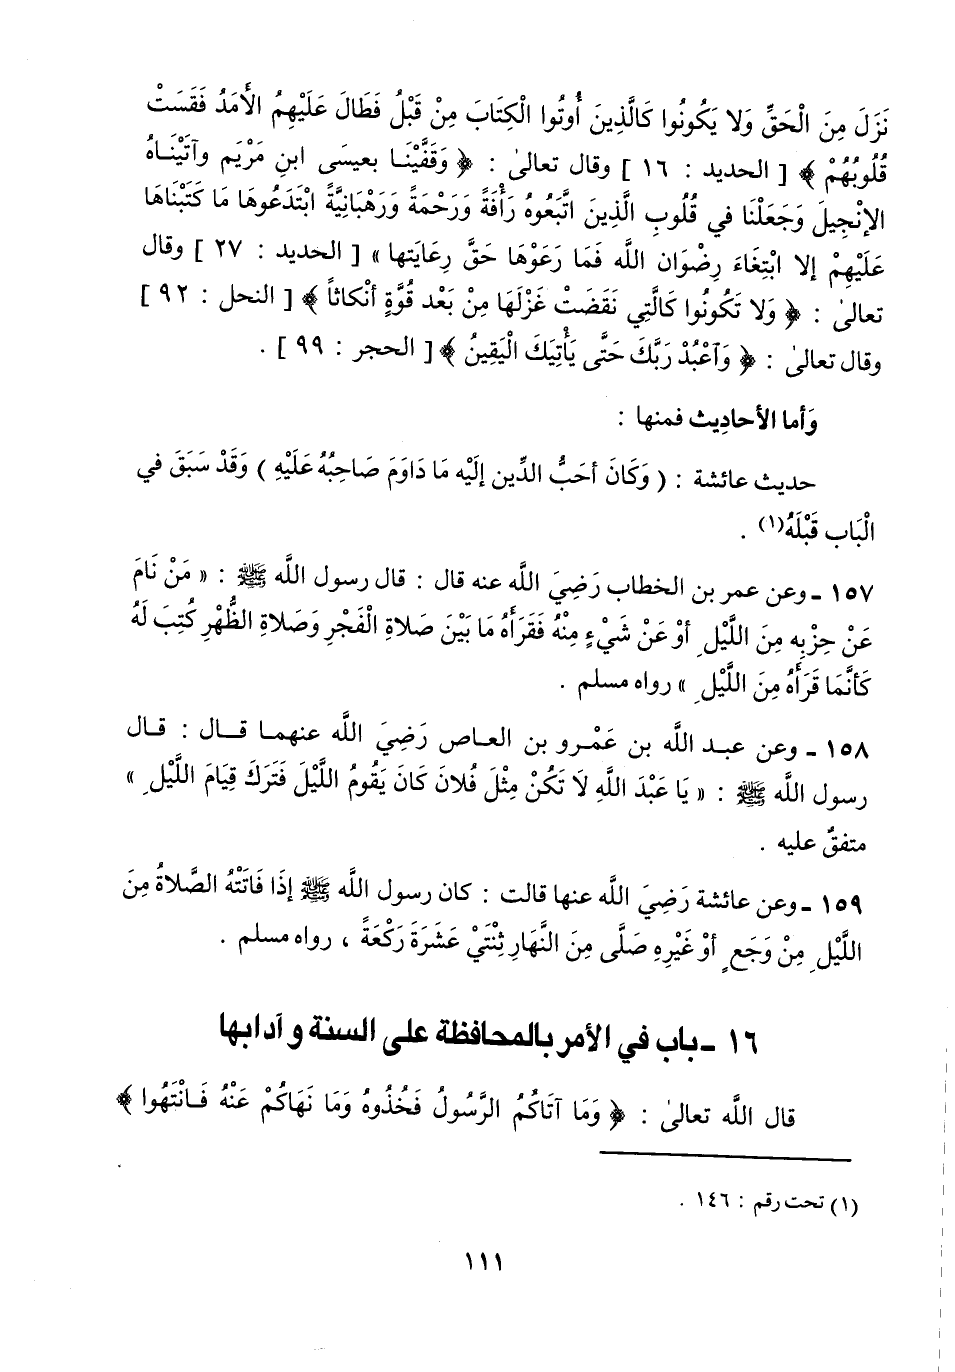 نَزَلَ مِنَ الْحَقِّ وَلا يَكُونُوا كَالَّذِينَ أُوتُوا الْكِتَابَ مِنْ قَبْلُ فَطَالَ عَلَيْهِمُ الأَمَدُ فَقَسَتْ
قُلُوبُهُمْ ﴾ [ الحديد : ١٦ ] وقال تعالىٰ : ﴿ وَقَفَّيْنَا بعيسَى ابنِ مَرْيَم وآتَيْنَاهُ
الإنْجِيلَ وَجَعَلْنَا في قُلُوبِ الَّذِينَ اتَّبَعُوهُ رَأْفَةً وَرَحْمَةً وَرَهْبَانِيَّةً ابْتَدَعُوهَا مَا كَتَبْنَاهَا
عَلَيْهِمْ إلا ابْتِغَاءَ رِضْوَان اللَّه فَمَا رَعَوْهَا حَقَّ رِعَايَتها » [ الحديد : ٢٧ ] وقال
تعالىٰ : ﴿ وَلا تَكُونُوا كَالَّتِي نَقَضَتْ غَزْلَهَا مِنْ بَعْد قُوَّةٍ أنْكاثاً ﴾ [ النحل : ٩٢ ]
وقال تعالىٰ : ﴿ وَآعْبُدْ رَبَّكَ حَتَّى يَأْتِيَكَ الْيَقِينُ ﴾ [ الحجر : ٩٩ ] .
وَأما الأحادِيث فمنها :
حديث عائشة : ( وَكَانَ أحَبُّ الدِّين إلَيْه مَا دَاوَمَ صَاحِبُهُ عَلَيْهِ ) وَقَدْ سَبَقَ في
الْبَاب قَبْلَهُ(١) .
١٥٧ ـ وعن عمر بن الخطاب رَضِيَ اللَّه عنه قال : قال رسول اللَّه ﷺ : « مَنْ نَامَ
عَنْ حِزْبِه مِنَ اللَّيْلِ أوْ عَنْ شَيْءٍ مِنْهُ فَقَرَأَهُ مَا بَيْنَ صَلاةِ الْفَجْرِ وَصَلاةِ الظُّهْرِ كُتِبَ لَهُ
كَأنَّمَا قَرَأَهُ مِنَ اللَّيْلِ » رواه مسلم .
١٥٨ ـ وعن عبـد اللَّه بن عَمْـرو بن العـاص رَضِيَ اللَّه عنهمـا قـال : قـال
رسول اللَّه ﷺ : « يَا عَبْدَ اللَّهِ لاَ تَكُنْ مِثْلَ فُلانَ كَانَ يَقُومُ اللَّيْلَ فَتَرَكَ قِيَامَ اللَّيْلِ »
متفقٌ عليه .
١٥٩ ـ وعن عائشة رَضِيَ اللَّه عنها قالت : كان رسول اللَّه ﷺ إذَا فَاتَتْهُ الصَّلاةُ مِنَ
اللَّيْلِ مِنْ وَجَعٍ أوْ غَيْرِهِ صَلَّى مِنَ النَّهَارِ ثِنْتَيْ عَشَرَةَ رَكْعَةً ، رواه مسلم .
١٦ ـ باب في الأمر بالمحافظة على السنة وآدابها
قال اللَّه تعالىٰ : ﴿ وَمَا آتَاكُمُ الرَّسُولُ فَخُذُوهُ وَمَا نَهَاكُمْ عَنْهُ فَـانْتَهُوا ﴾
(١) تحت رقم : ١٤٦ .
١١١